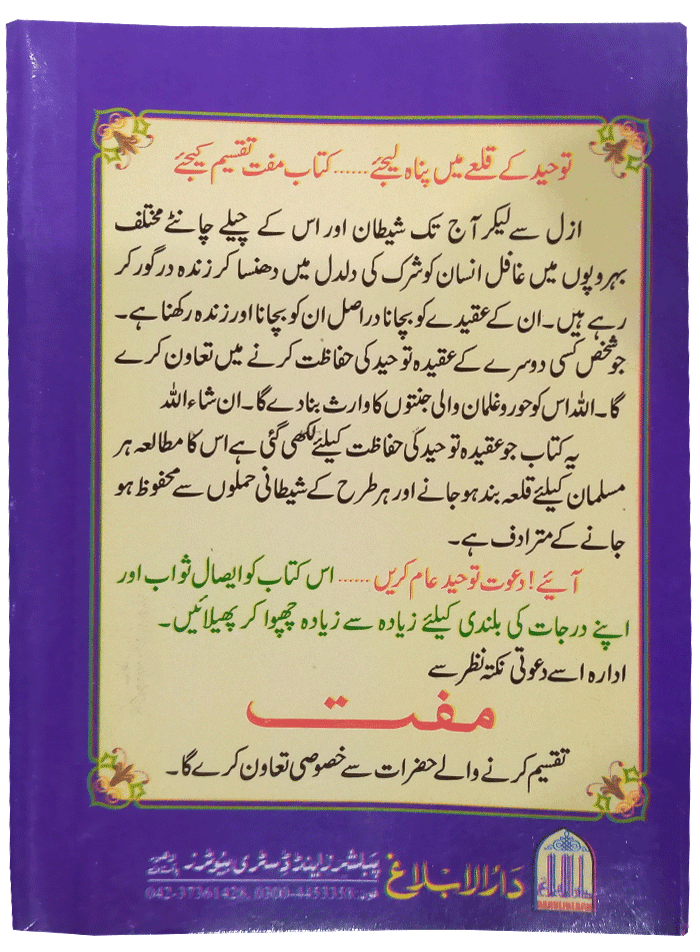 توحید کے قلعے میں پناہ لیجئے...... کتاب مفت تقسیم کیجئے
ازل سے لیکر آج تک شیطان اور اس کے چیلے چانٹے مختلف
بہروپوں میں غافل انسان کو شرک کی دلدل میں دھنسا کر زندہ درگور کر
رہے ہیں۔ ان کے عقیدے کو بچانا دراصل ان کو بچانا اور زندہ رکھنا ہے۔
جو شخص کسی دوسرے کے عقیدہ توحید کی حفاظت کرنے میں تعاون کرے
گا۔ اللہ اس کو حور و غلمان والی جنتوں کا وارث بنا دے گا۔ ان شاء اللہ
یہ کتاب جو عقیدہ توحید کی حفاظت کیلئے لکھی گئی ہے اس کا مطالعہ ہر
مسلمان کیلئے قلعہ بند ہو جانے اور ہر طرح کے شیطانی حملوں سے محفوظ ہو
جانے کے مترادف ہے۔
آیئے! دعوت توحید عام کریں...... اس کتاب کو ایصال ثواب اور
اپنے درجات کی بلندی کیلئے زیادہ سے زیادہ چھپوا کر پھیلائیں۔
ادارہ اسے دعوتی نکتہ نظر سے
مفت
تقسیم کرنے والے حضرات سے خصوصی تعاون کرے گا۔
دارالابلاغ پبلشرز اینڈ ڈسٹری بیوٹرز
042-37361428, 0300-4453358